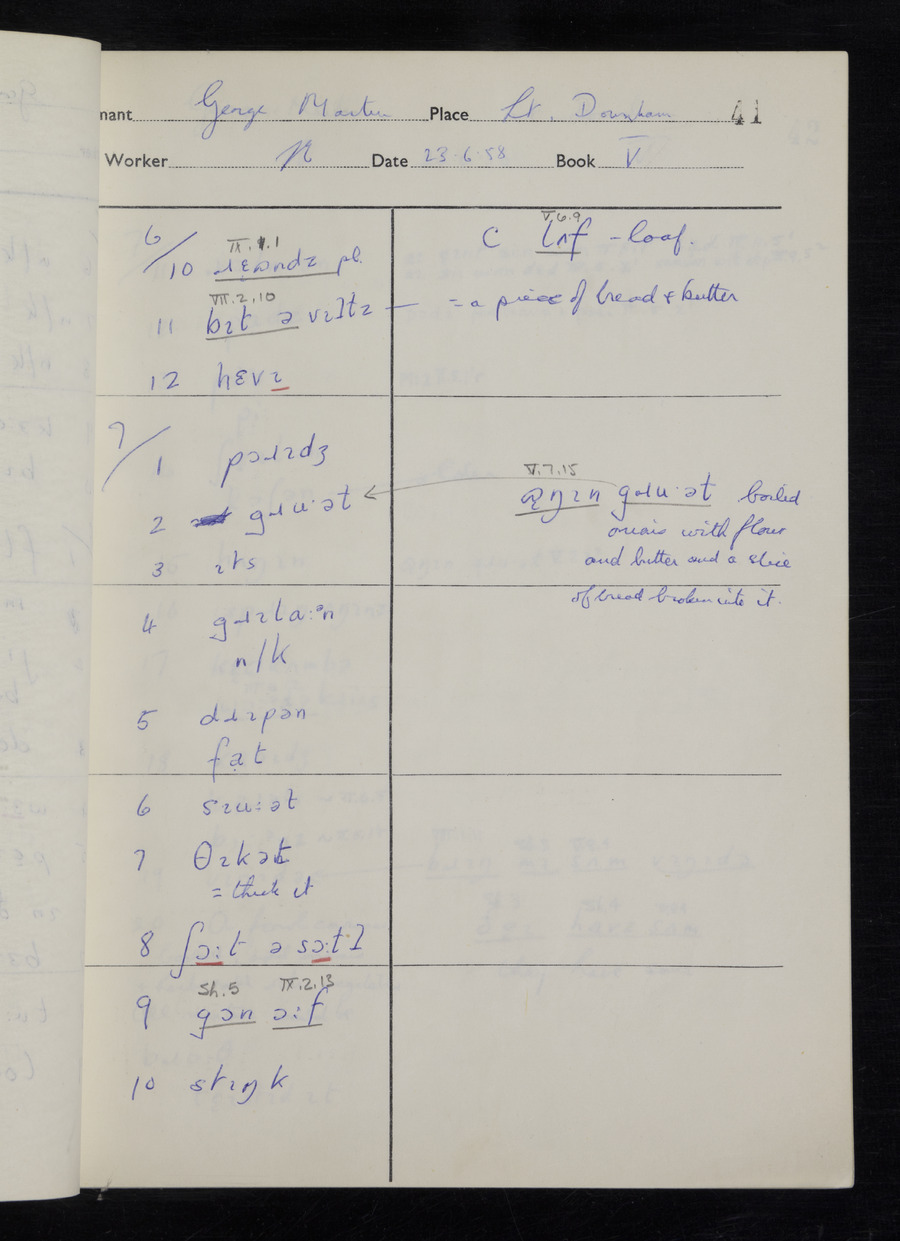 nant George Martin Place Lt. Downham 41
Worker Date 23.6.58 Book V
6/
10 ɹɛəɪndz pl.
11 VII.2,10
bɪt ə vɪltɪ — = a piece of bread & butter
12 hɛvɪ
C V.6.9
lʌf - loaf.
7/
1 pɔɹɪdʒ
2 gɹuˑət
3 ɪts
V.7.15
gɹuˑət boiled
onions with flour
and butter and a slice
of bread broken into it.
4
n/k
5 dɹɪpən
fat
6 sɪuːət
7 θɪkət
= thick it
8 ʃɔːt ə sɔːtɪ
9 Sh.5 IX.2.13
gɒn ɔːf
10 stɪŋk